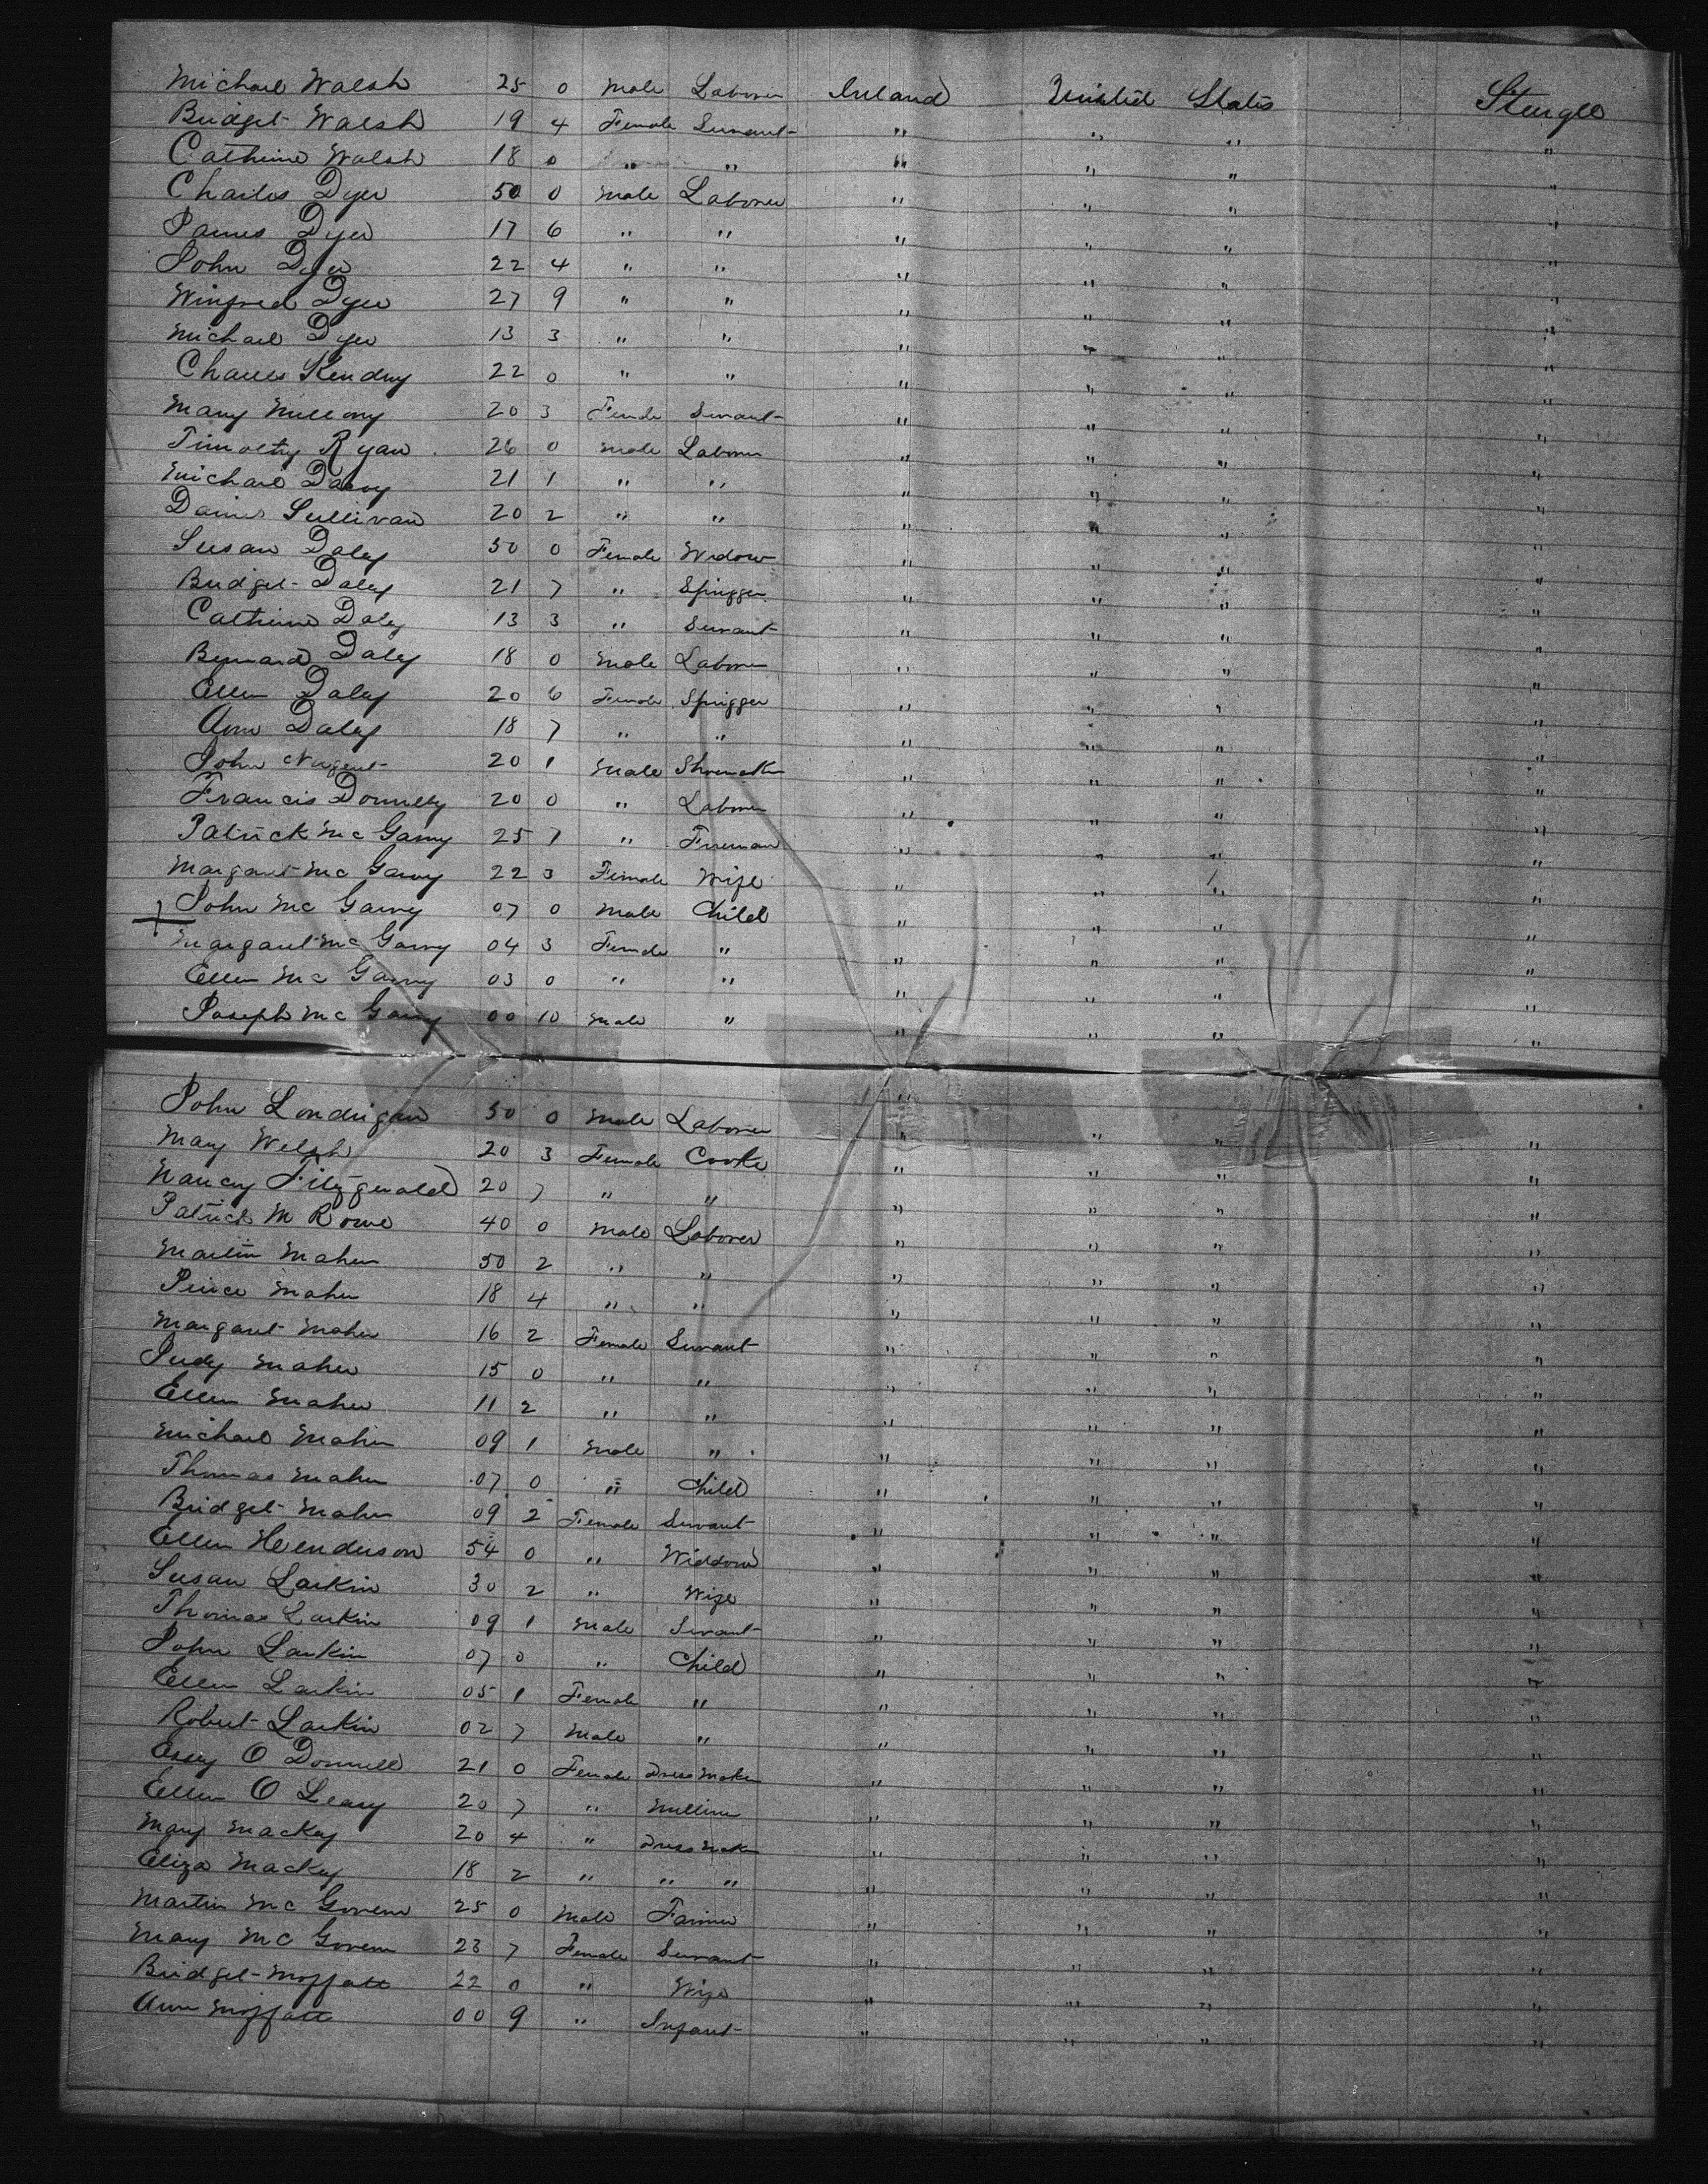 Michael Walsh 25 0 Male Laborer Ireland United States Steerage
Bridget Walsh 19 4 Female Servant " " " "
Cathrine Walsh 18 0 " " " " " "
Charles Dyer 50 0 Male Laborer " " " "
James Dyer 17 6 " " " " " "
John Dyer 22 4 " " " " " "
Winfred Dyer 27 9 " " " " " "
Michael Dyer 13 3 " " " " " "
Charles Kendry 22 0 " " " " " "
Mary 20 3 Female Servant " " " "
Timothy Ryan 26 0 Male Laborer " " " "
Michael 21 1 " " " " " "
Sullivan 20 2 " " " " " "
Susan Daley 50 0 Female Widow " " " "
Bridget Daley 21 7 " Sprigger " " " "
Cathrine Daley 13 3 " Servant " " " "
Bernard Daley 18 0 Male Laborer " " " "
Ellen Daley 20 6 Female Sprigger " " " "
Ann Daley 18 7 " " " " " "
John Nugent 20 1 Male Shoemaker " " " "
Francis Donnelly 20 0 " Laborer " " " "
Patrick Mc Garvy 25 7 " Fireman " " " "
Margaret Mc Garvy 22 3 Female Wife " " " "
John Mc Garvy 07 0 Male Child " " " "
Margaret Mc Garvy 04 3 Female " " " " "
Ellen Mc Garvy 03 0 " " " " " "
Joseph Mc Garvy 00 10 Male " " " " "
John Londrigan 50 0 Male Laborer " " " "
Mary Welsh 20 3 Female Cooke " " " "
Nancy Fitzgerald 20 7 " " " " " "
Patrick M Rowe 40 0 Male Laborer " " " "
Martin Maher 50 2 " " " " " "
Peirce Maher 18 4 " " " " " "
Margaret Maher 16 2 Female Servant " " " "
Judy Maher 15 0 " " " " " "
Ellen Maher 11 2 " " " " " "
Michael Maher 09 1 Male " " " " "
Thomas Maher 07 0 " Child " " " "
Bridget Maher 09 2 Female Servant " " " "
Ellen Henderson 54 0 " Widdow " " " "
Susan Larkin 30 2 " Wife " " " "
Thomas Larkin 09 1 Male Servant " " " "
John Larkin 07 0 " Child " " " "
Ellen Larkin 05 1 Female " " " " "
Robert Larkin 02 7 Male " " " " "
Essy O Donnell 21 0 Female Dress Maker " " " "
Ellen O Leary 20 7 " Milliner " " " "
Mary Mackey 20 4 " Dress Maker " " " "
Eliza Mackey 18 2 " " " " " " "
Martin Mc Govern 25 0 Male Farmer " " " "
Mary Mc Govern 23 7 Female Servant " " " "
Bridget Moffatt 22 0 " Wife " " " "
Ann Moffatt 00 9 " Infant " " " "